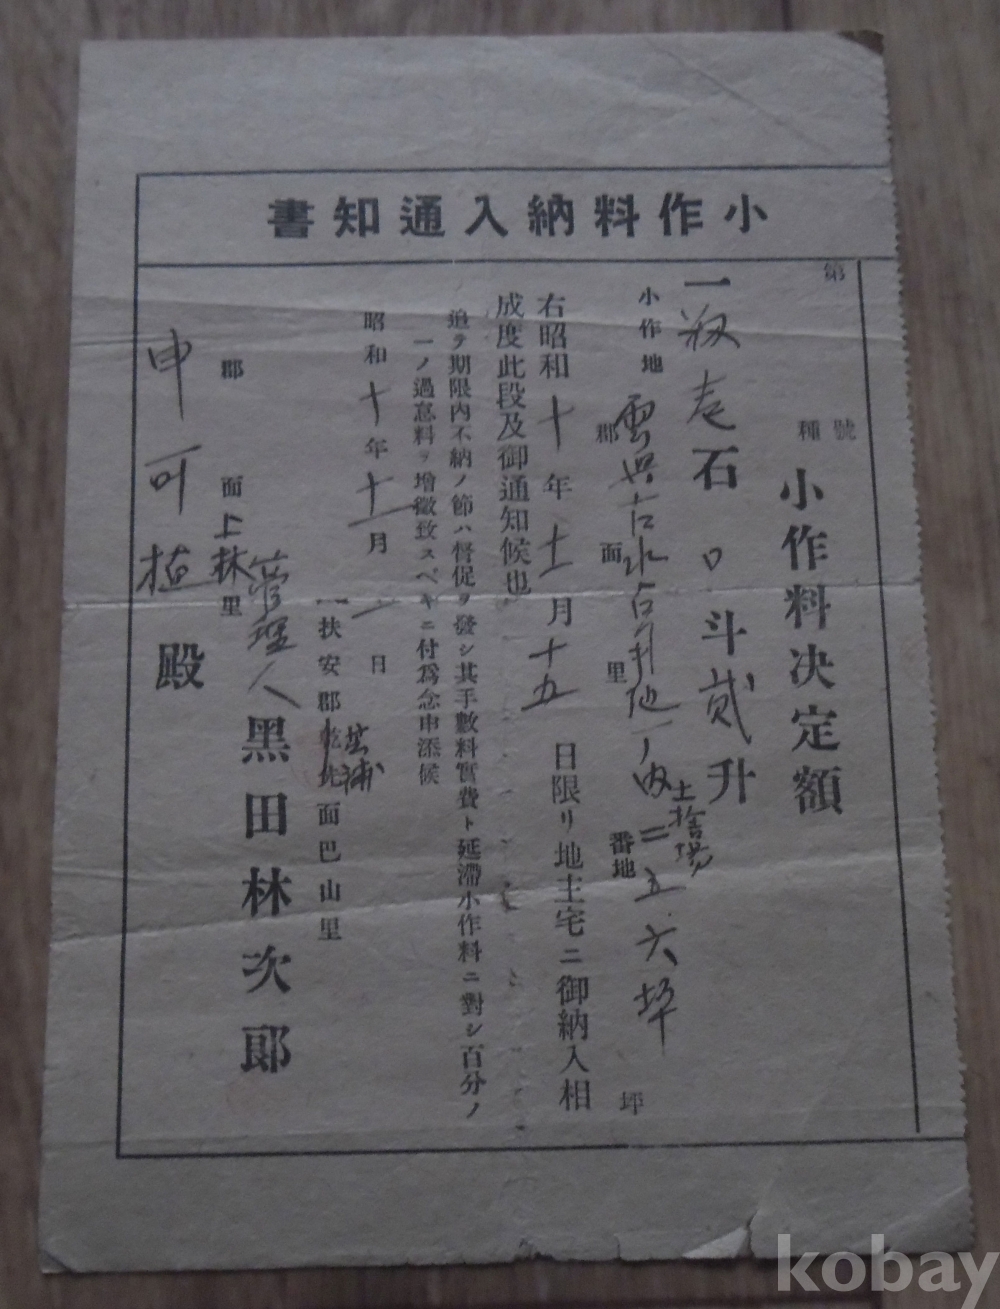 小作料納入通知書
第　　號
種　小作料決定額
一籾壱石０斗貳升
小作地　郡　面　里　番地　坪
土捨場
二五六坪
右昭和十年十二月十五日限リ地主宅ニ御納入相
成度此段及御通知候也
追テ期限内不納ノ節ハ督促ヲ發シ其手數料實費ト延滯小作料ニ對シ百分ノ
一ノ過怠料ヲ増徴致スベキニ付爲念申添候
昭和十年十二月一日
扶安郡　面巴山里
管理人　黑田林次郎
郡　面上林里
申可　殿
kobay